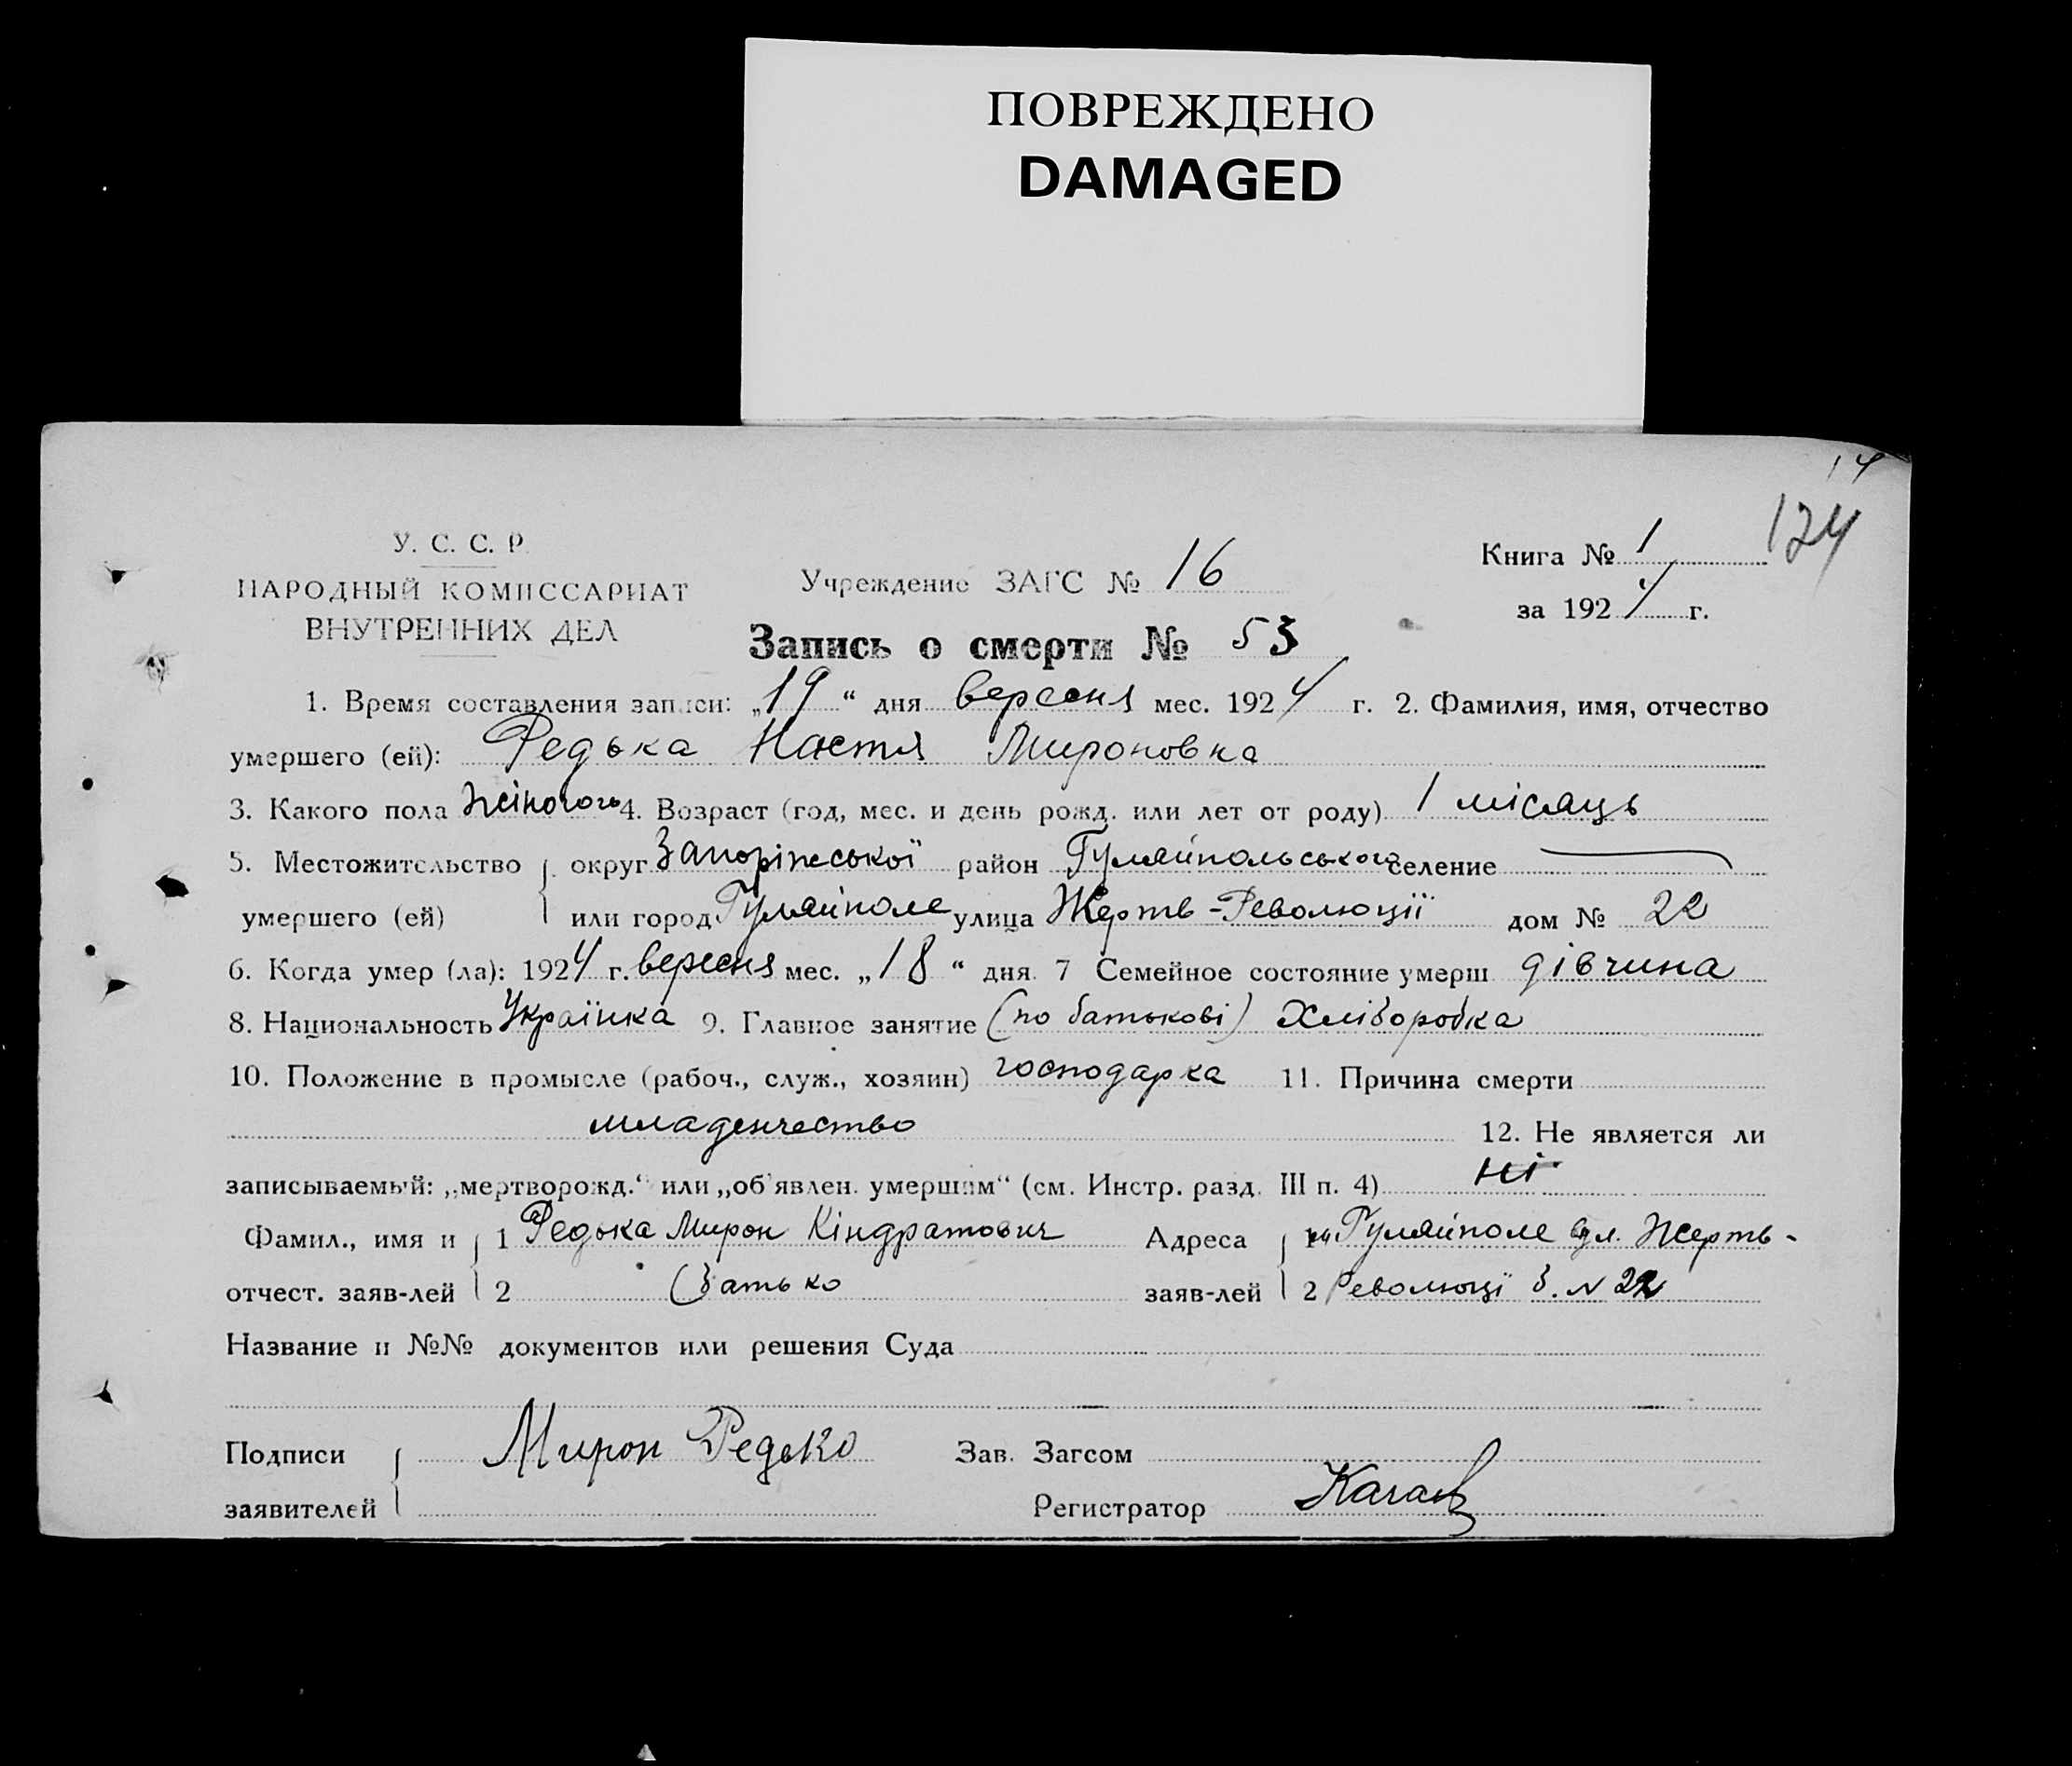 ПОВРЕЖДЕНО
DAMAGED
14
124
У. С. С. Р.
НАРОДНЫЙ КОМИССАРИАТ
ВНУТРЕННИХ ДЕЛ
Учреждение ЗАГС № 16
Книга № 1
за 1924 г.
Запись о смерти № 53
1. Время составления записи: „19“ дня вересня мес. 1924 г. 2. Фамилия, имя, отчество
умершего (ей): Редька Настя Мироновна
3. Какого пола жіночого 4. Возраст (год, мес. и день рожд. или лет от роду) 1 місяць
5. Местожительство округ Запоріжської район Гуляйпольського селение
умершего (ей) или город Гуляйполе улица Жертв-Революції дом № 22
6. Когда умер (ла): 1924 г. вересня мес. „18“ дня. 7 Семейное состояние умерш. дівчина
8. Национальность Українка 9. Главное занятие (по батькові) Хліборобка
10. Положение в промысле (рабоч., служ., хозяин) господарка 11. Причина смерти
младенчество 12. Не является ли
записываемый: „мертворожд.“ или „об'явлен. умершим“ (см. Инстр. разд. III п. 4) ні
Фамил., имя и 1 Редька Мирон Кіндратович Адреса 1 Гуляйполе вул. Жертв-
отчест. заяв-лей 2 (батько заяв-лей 2 Революці б. N 22
Название и №№ документов или решения Суда
Подписи Мирон Редько Зав. Загсом
заявителей Регистратор